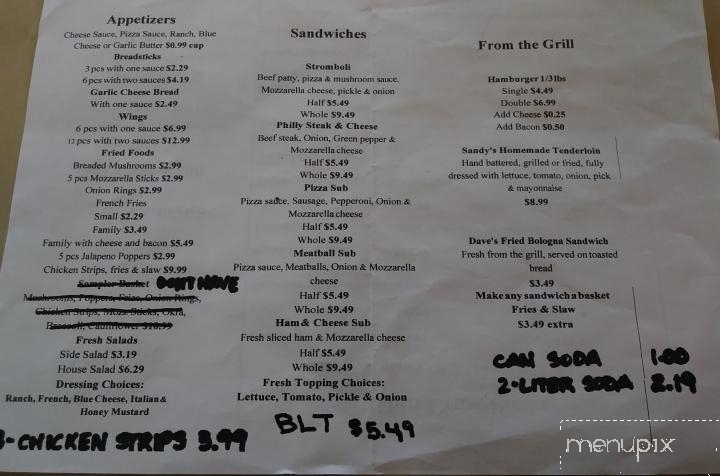 Appetizers
Cheese Sauce, Pizza Sauce, Ranch, Blue
Cheese or Garlic Butter $0.99 cup
Breadsticks
3 pcs with one sauce $2.29
6 pcs with two sauces $4.19
Garlic Cheese Bread
With one sauce $2.49
Wings
6 pcs with one sauce $6.99
12 pcs with two sauces $12.99
Fried Foods
Breaded Mushrooms $2.99
5 pcs Mozzarella Sticks $2.99
Onion Rings $2.99
French Fries
Small $2.29
Family $3.49
Family with cheese and bacon $5.49
5 pcs Jalapeno Poppers $2.99
Chicken Strips, fries & slaw $9.99
Sampler Basket DON'T HAVE
Mushrooms, Poppers, Fries, Onion Rings,
Chicken Strips, Mozz Sticks, Okra,
Broccoli, Cauliflower $10.99
Fresh Salads
Side Salad $3.19
House Salad $6.29
Dressing Choices:
Ranch, French, Blue Cheese, Italian &
Honey Mustard
3-CHICKEN STRIPS 3.99
Sandwiches
Stromboli
Beef patty, pizza & mushroom sauce,
Mozzarella cheese, pickle & onion
Half $5.49
Whole $9.49
Philly Steak & Cheese
Beef steak, Onion, Green pepper &
Mozzarella cheese
Half $5.49
Whole $9.49
Pizza Sub
Pizza sauce, Sausage, Pepperoni, Onion &
Mozzarella cheese
Half $5.49
Whole $9.49
Meatball Sub
Pizza sauce, Meatballs, Onion & Mozzarella
cheese
Half $5.49
Whole $9.49
Ham & Cheese Sub
Fresh sliced ham & Mozzarella cheese
Half $5.49
Whole $9.49
Fresh Topping Choices:
Lettuce, Tomato, Pickle & Onion
BLT $5.49
From the Grill
Hamburger 1/3 lbs
Single $4.49
Double $6.99
Add Cheese $0.25
Add Bacon $0.50
Sandy's Homemade Tenderloin
Hand battered, grilled or fried, fully
dressed with lettuce, tomato, onion, pick
& mayonnaise
$8.99
Dave's Fried Bologna Sandwich
Fresh from the grill, served on toasted
bread
$3.49
Make any sandwich a basket
Fries & Slaw
$3.49 extra
CAN SODA 1.00
2-LITER SODA 2.19
menupix